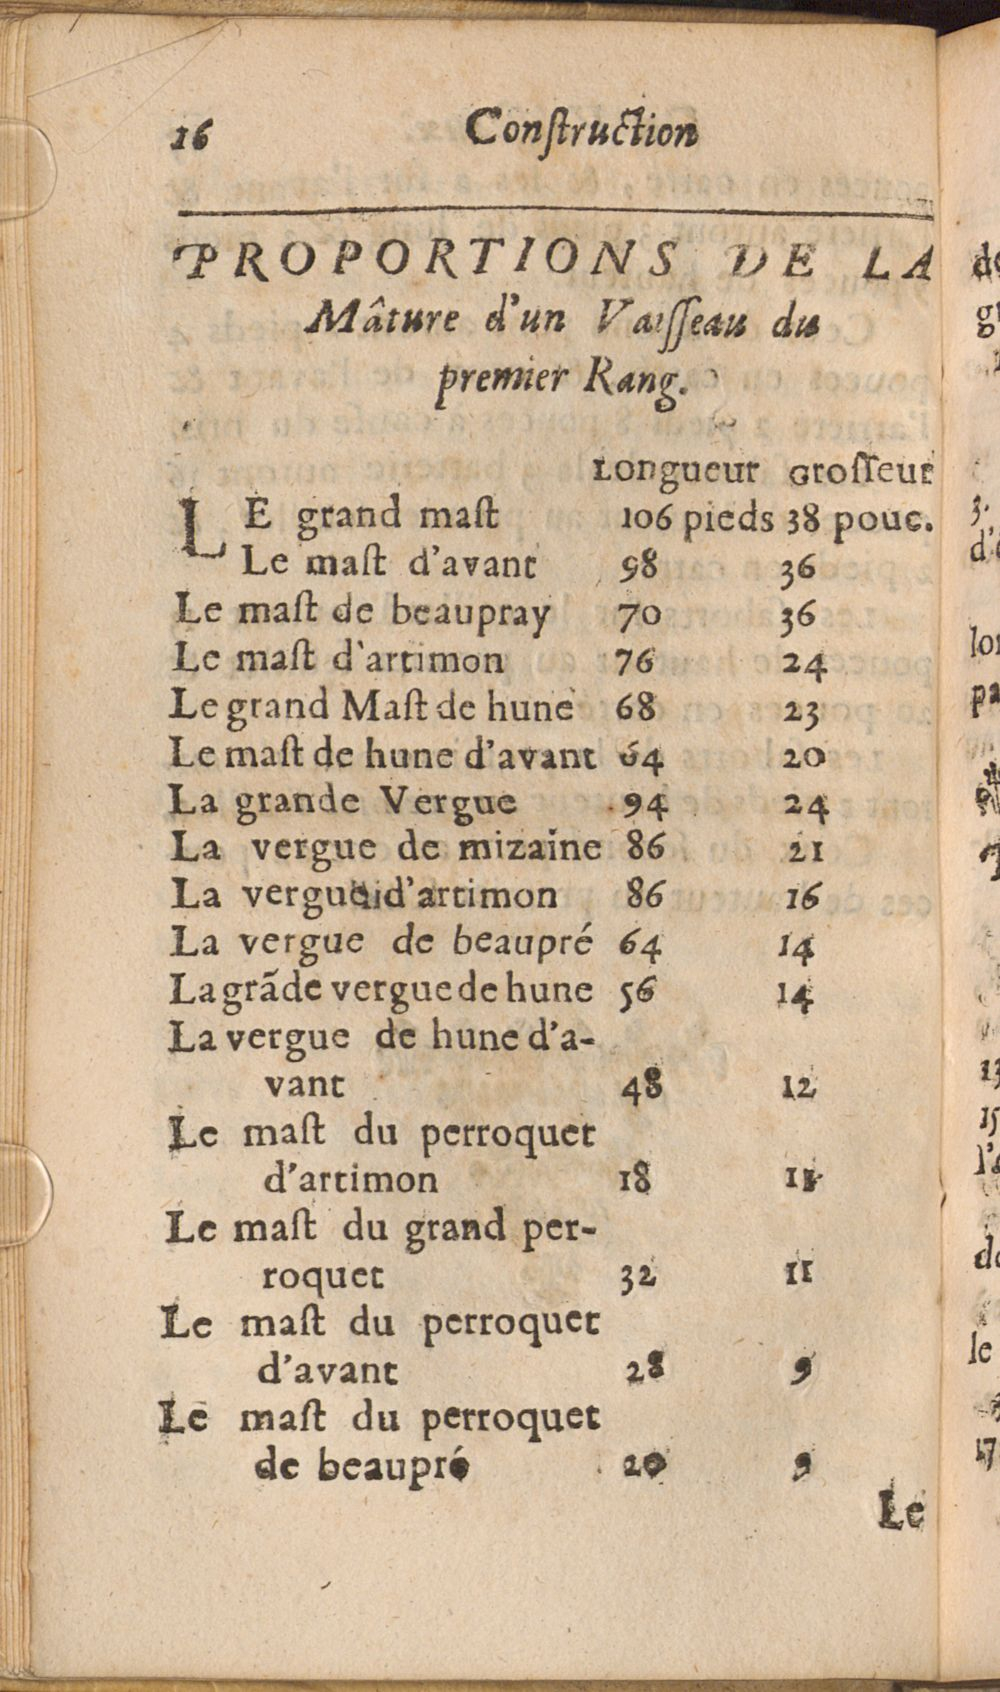 16 Conſtruction
PROPORTIONS DE LA
Mâture d'un Vaiſſeau du
premier Rang.
Longueur Groſſeur
LE grand maſt 106 pieds 38 pouc.
Le maſt d'avant 98 36
Le maſt de beaupray 70 36
Le maſt d'artimon 76 24
Le grand Maſt de hune 68 23
Le maſt de hune d'avant 64 20
La grande Vergue 94 24
La vergue de mizaine 86 21
La vergue d'artimon 86 16
La vergue de beaupré 64 14
La grãde vergue de hune 56 14
La vergue de hune d'a-
vant 48 12
Le maſt du perroquet
d'artimon 18
Le maſt du grand per-
roquet 32 11
Le maſt du perroquet
d'avant 28 9
Le maſt du perroquet
de beaupré 20 9
Le